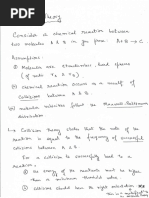 Theory
Consider a chemical reaction between
two molecules A & B in gas phase. A+B → C.
Assumptions
(i) molecules are structureless hard spheres
(of radii rA & rB)
(ii) chemical reaction occurs as a result of
collision between A & B.
(iii) molecular velocities follow the Maxwell-Boltzmann
distribution.
Collision theory states that the rate of the
reaction is equal to the frequency of successful
collisions between A & B.
For a collision to successfully lead to a
reaction,
the energy of the reactants must be higher
than a minimum threshold value
Collisions should have the right orientation